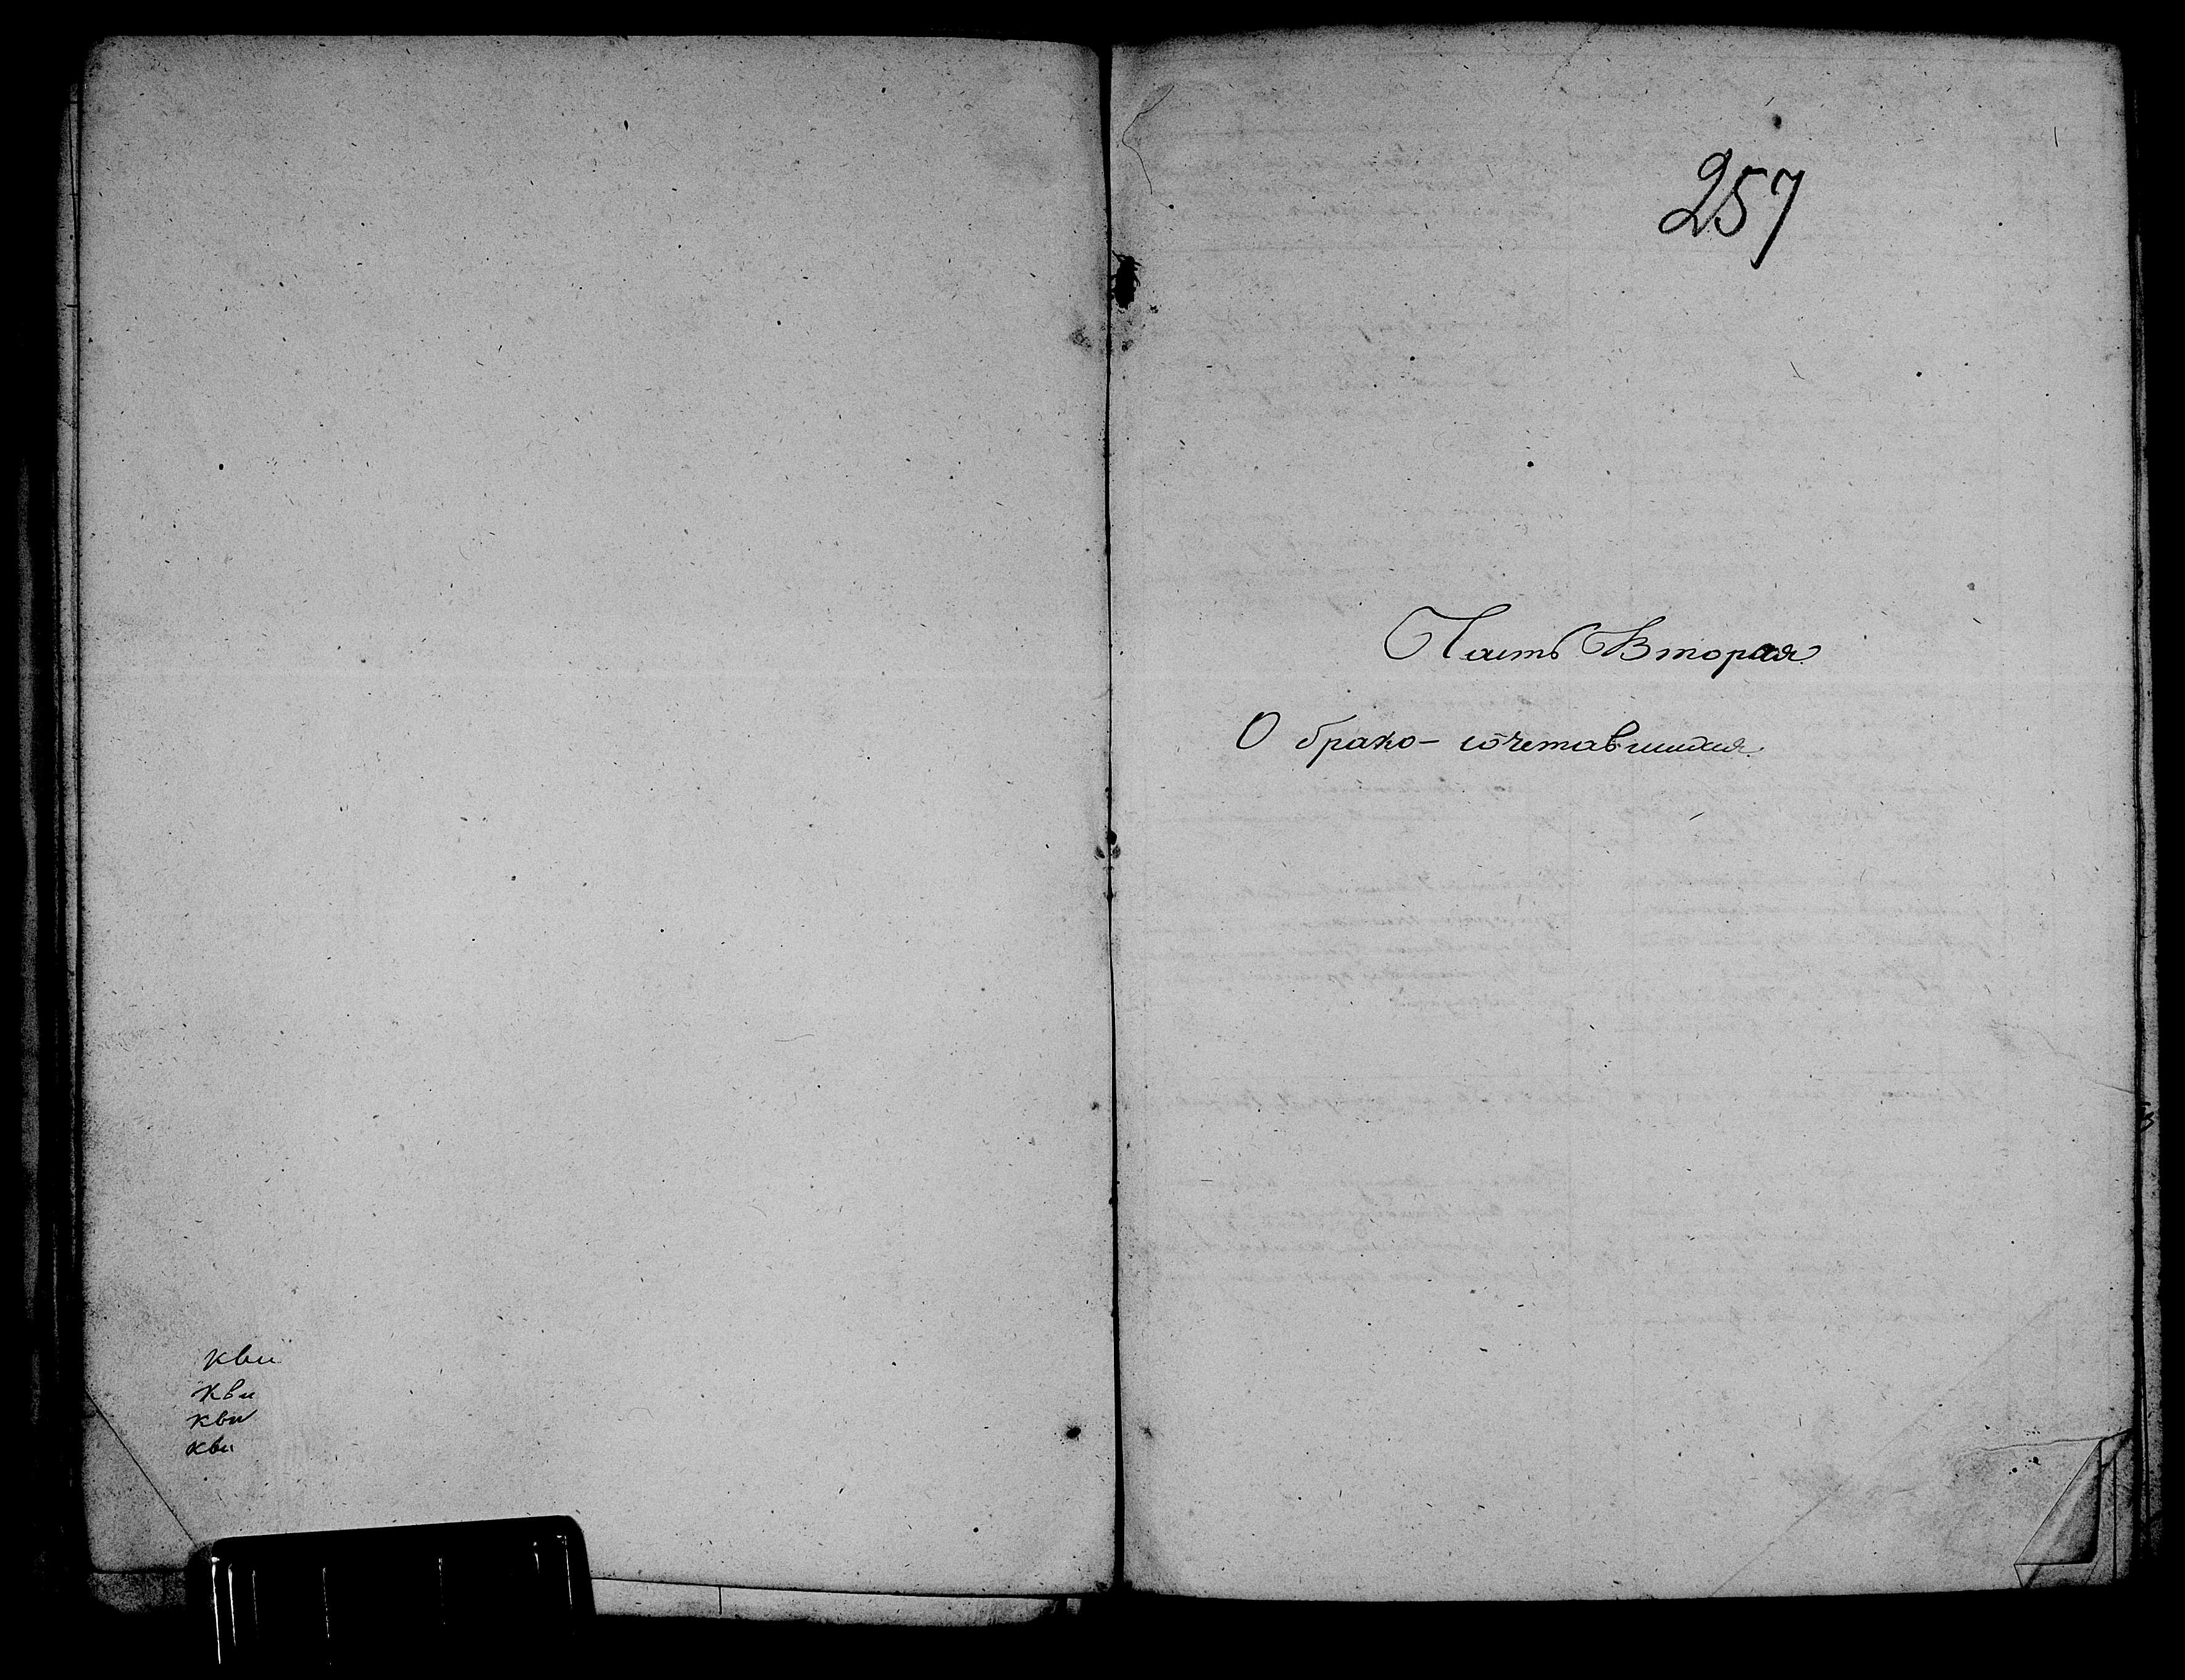 квii
кви
кви
кви
257
Часть Вторая
О брако- сочетавшихся.